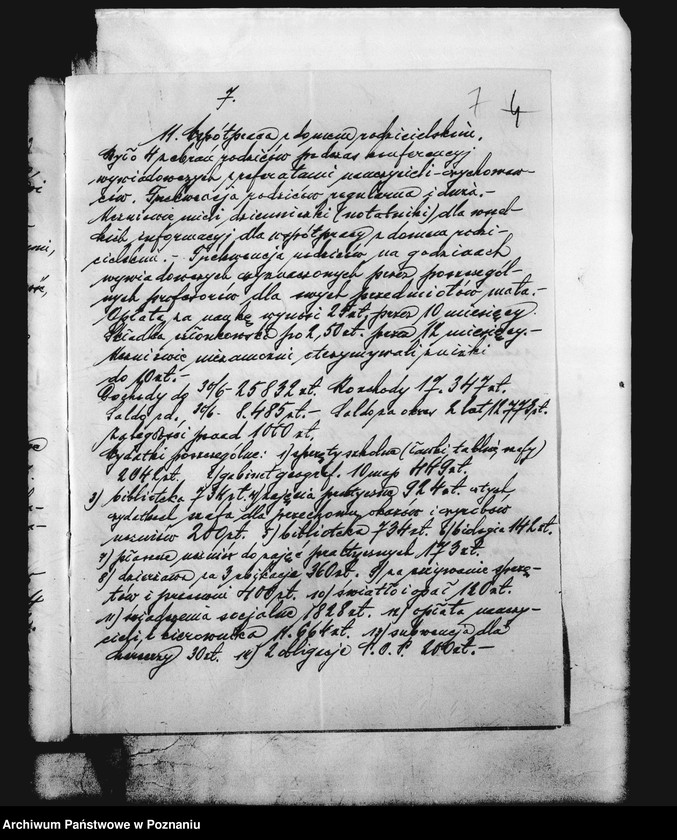 7.
7 4
11. Współpraca z domem rodzicielskim.
Było 4 zebrań rodziców podczas konferencyj
wywiadowczych z referatami nauczycieli-wychowaw-
ców. Frekwencja rodziców regularna i duża.-
Uczniowie mieli dzienniczki (notatniki) dla wszel-
kich informacyj dla współpracy z domem rodzi-
cielskim.- Frekwencja rodziców na godzinach
wywiadowczych wyznaczonych przez poszczegól-
nych profesorów dla swych przedmiotów mała.-
Opłata za naukę wynosi 25 zł, przez 10 miesięcy.
Składka członkowska po 2,50 zł. przez 12 miesięcy.-
Uczniowie niezamożni otrzymywali zniżki
do 10 zł.-
Dochody do 30/6 - 25832 zł. Rozchody 17.347 zł.
Saldo 30/6 - 8.485 zł.- Saldo za okres 2 lat 12.773 zł.
Zaległości ponad 1000 zł.
Wydatki poszczególne: 1) sprzęty szkolne (ławki tablice szafy)
204 zł. 2) gabinet geograf. 10 map 449 zł.
3) biblioteka 73 zł. 4) zajęcia praktyczne 924 zł. w tych
wydatkach szafa dla przechow. okazów i wyrobów
uczniów 200 zł. 5) biblioteka 734 zł. 6) biologia 142 zł.
7) uczniów do zajęć praktycznych 173 zł.
8) dzierżawa za 3 ubikacje 360 zł. 9) za używanie sprzę-
tów i pracowni 400 zł. 10) światło i opał 120 zł.
11) świadczenia socjalne 1828 zł. 12) opłata nauczy-
cieli i kierownika 11.664 zł. 13) subwencja dla
30 zł. 14) 2 obligacje P.O.P. 200 zł.-
Archiwum Państwowe w Poznaniu